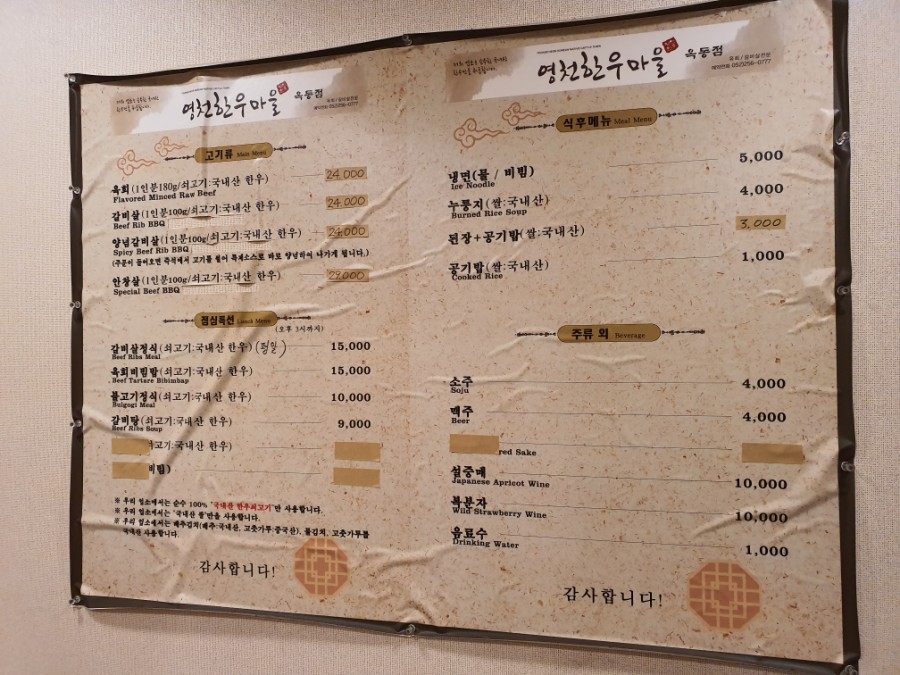 영천한우마을 옥동점
육회/갈비살전문
예약전화 052)256-0777
고기류 Main Menu
육회(1인분180g/쇠고기:국내산 한우) 24,000
Flavored Minced Raw Beef
갈비살(1인분100g/쇠고기:국내산 한우) 24,000
Beef Rib BBQ
양념갈비살(1인분100g/쇠고기:국내산 한우) 24,000
Spicy Beef Rib BBQ
(주문이 들어오면 즉석에서 고기를 썰어 특제소스로 바로 양념하여 나가게 됩니다.)
안창살(1인분100g/쇠고기:국내산 한우) 29,000
Special Beef BBQ
점심특선 Lunch Menu
(오후 3시까지)
갈비살정식(쇠고기:국내산 한우) (평일) 15,000
Beef Ribs Meal
육회비빔밥(쇠고기:국내산 한우) 15,000
Beef Tartare Bibimbap
불고기정식(쇠고기:국내산 한우) 10,000
Bulgogi Meal
갈비탕(쇠고기:국내산 한우) 9,000
Beef Ribs Soup
고기:국내산 한우)
비빔)
※ 우리 업소에서는 순수 100% "국내산 한우쇠고기"만 사용합니다.
※ 우리 업소에서는 "국내산 쌀"만을 사용합니다.
※ 우리 업소에서는 배추김치(배추:국내산, 고춧가루:중국산), 물김치, 고춧가루를
국내산 사용합니다.
감사합니다!
영천한우마을 옥동점
육회/갈비살전문
예약전화 052)256-0777
식후메뉴 Meal Menu
냉면(물 / 비빔) 5,000
Ice Noodle
누룽지(쌀:국내산) 4,000
Burned Rice Soup
된장+공기밥(쌀:국내산) 3,000
공기밥(쌀:국내산) 1,000
Cooked Rice
주류 외 Beverage
소주 4,000
Soju
맥주 4,000
Beer
red Sake
설중매 10,000
Japanese Apricot Wine
복분자 10,000
Wild Strawberry Wine
음료수 1,000
Drinking Water
감사합니다!